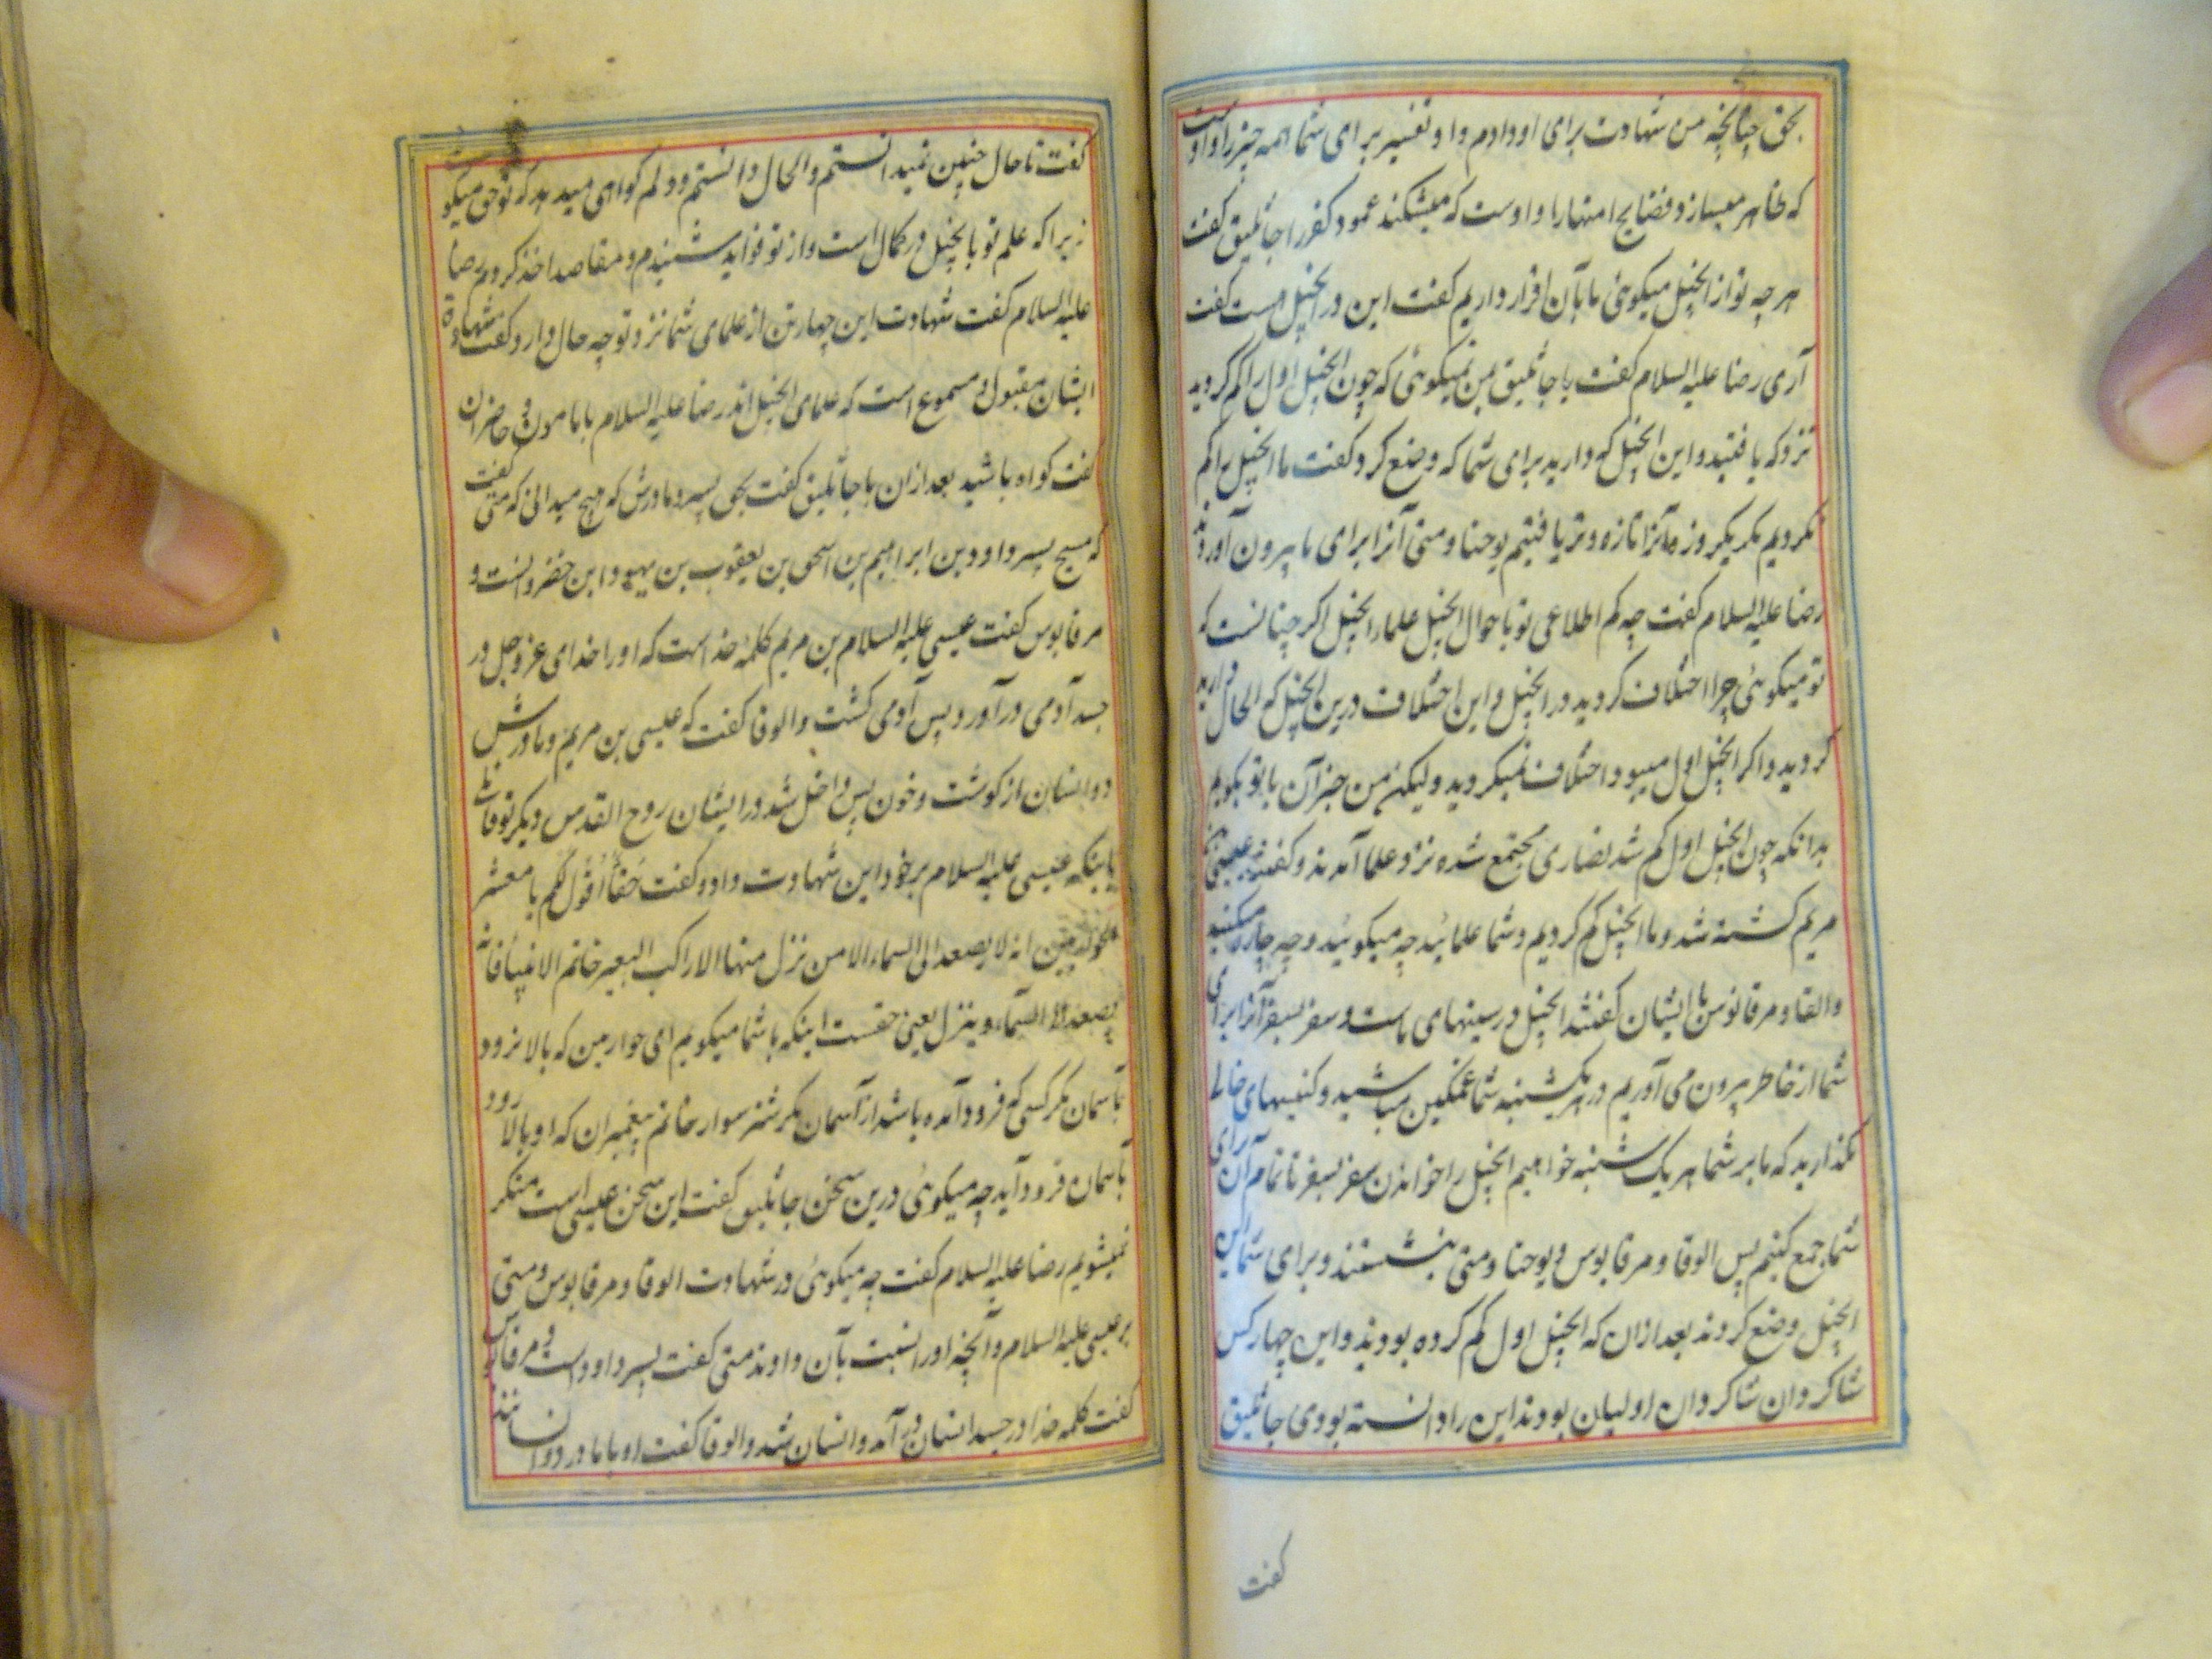 بحق چنانچه من شهادت برای او دادم و او تفسیر برای شما همه چیز را و اوست
که ظاهر میسازد فضایح امتها را و اوست که میشکند عمود کفر را جاثلیق گفت
هر چه تو از انجیل میکوئی ما بآن اقرار داریم گفت این در انجیل هست گفت
آری رضا علیه السلام گفت یا جاثلیق بمن نمیکوئی که چون انجیل اول را گم کردید
نزد که یافتید و این انجیل که دارید برای شما که وضع کرد گفت ما انجیل را گم
نکردیم مگر یکروز و آنرا تازه و تر یافتیم یوحنا و متی آنرا برای ما بیرون آوردند
رضا علیه السلام گفت چه کم اطلاعی تو باحوال انجیل علماء انجیل اگر چنانست که
تو میکوئی چرا اختلاف کردید در انجیل و این اختلاف درین انجیل که الحال دارید
کردید و اگر انجیل اول میبود اختلاف نمیکردید ولیکن من خبر آن با تو بکویم
بدانکه چون انجیل اول گم شد نصاری مجتمع شده نزد علما آمدند و گفتند عیسی بن
مریم کشته شد و ما انجیل گم کردیم و شما علمائید چه میکوئید و چه چاره میکنید
و القا و مرقابوس با ایشان گفتند انجیل در سینهای ماست و سفر بسفر آنرا برای
شما از خاطر بیرون می آوریم در هر یکشنبه شما غمگین مباشید و کنیسهای خالی
مگذارید که ما بر شما هر یک شنبه خواهیم انجیل را خواندن سفر بسفر تا تمام آن برای
شما جمع کنیم پس الوقا و مرقابوس و یوحنا و متی بنشستند و برای شما این
انجیل وضع کردند بعد از ان که انجیل اول گم کرده بودند و این چهار کس
شاکردان شاکردان اولیان بودند این را دانسته بودی جاثلیق
گفت
گفت تا حال چنین نمیدانستم و الحال دانستم و دلم کواهی میدهد که تو حق میکوئی
زیرا که علم تو بانجیل در کمال است و از تو فواید شنیدم و مقاصد اخذ کردم رضا
علیه السلام گفت شهادت این چهار تن از علمای شما نزد تو چه حال دارد گفت شهادة
ایشان مقبول و مسموع است که علمای انجیل اند رضا علیه السلام با مامون و حاضران
گفت کواه باشید بعد ازان با جاثلیق گفت بحق پسر و مادرش که هیچ میدانی که متی گفت
که مسیح پسر داود بن ابراهیم بن اسحق بن یعقوب بن یهودا بن حضرونست و
مرقابوس گفت عیسی علیه السلام بن مریم کلمه خداست که او را خدای عز وجل در
جسد آدمی در آورد پس آدمی کشت و الوقا گفت که عیسی بن مریم و مادرش
دو انسان از کوشت و خون پس داخل شد در ایشان روح القدس دیکر تو قائلی
باینکه عیسی علیه السلام بر خود این شهادت داده و گفت حقا اقول لکم یا معشر
الحواریین انه لا یصعد الی السماء الا من نزل منها الا راکب البعیر خاتم الانبیاء فانه
یصعد الی السماء و ینزل یعنی حقست اینکه با شما میکویم ای حواریین که بالا نرود
بآسمان مگر کسی که فرود آمده باشد از آسمان مگر شتر سوار خاتم پیغمبران که او بالا رود
بآسمان و فرود آید چه میکوئی درین سخن جاثلیق گفت این سخن عیسی است منکر
نمیشویم رضا علیه السلام گفت چه میکوئی در شهادت الوقا و مرقابوس و متی
بر عیسی علیه السلام و آنچه او را نسبت بآن دادند متی گفت پسر داود است و مرقابوس
گفت کلمه خدا در جسد انسان در آمد و انسان شد و الوقا گفت او با مادر دو انسانند